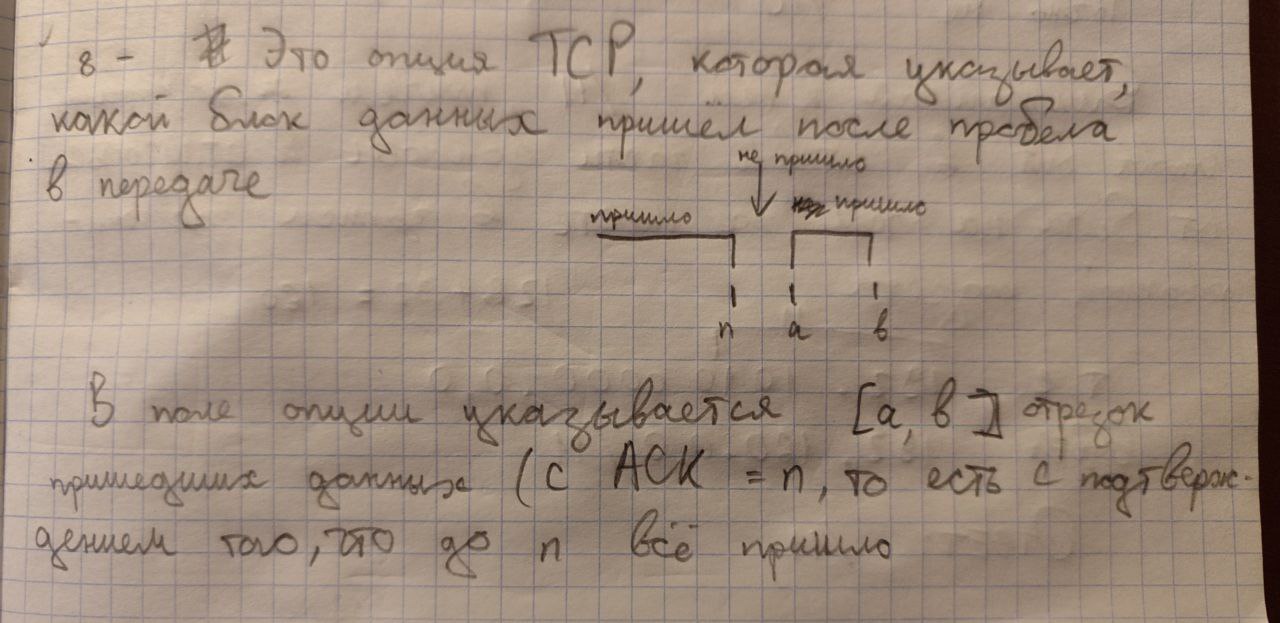 8 - Это опция TCP, которая указывает,
какой блок данных пришёл после пробела
в передаче
не пришло
пришло
пришло
n a b
В поле опции указывается [a, b] отрезок
пришедших данных (с ACK = n, то есть с подтверж-
дением того, что до n всё пришло